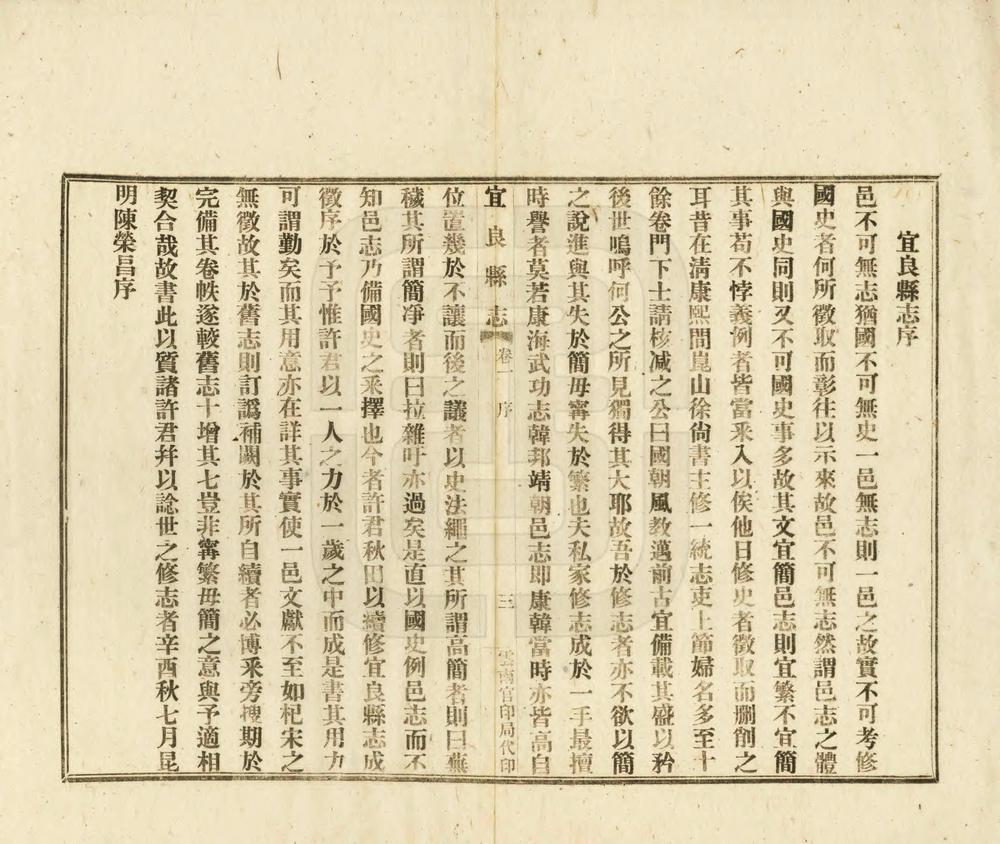 宜良縣志序
邑不可無志猶國不可無史一邑無志則一邑之故實不可考修
國史者何所徵取而彰往以示來故邑不可無志然謂邑志之體
與國史同則又不可國史事多故其文宜簡邑志則宜繁不宜簡
其事苟不悖義例者皆當采入以俟他日修史者徵取而刪削之
耳昔在淸康熙間崑山徐尙書主修一統志吏上節婦名多至十
餘卷門下士請核减之公曰國朝風敎邁前古宜備載其盛以矜
後世嗚呼何公之所見獨得其大耶故吾於修志者亦不欲以簡
之說進與其失於簡毋寗失於繁也夫私家修志成於一手最擅
時譽者莫若康海武功志韓邦靖朝邑志即康韓當時亦皆高自
宜良縣志 卷一 序 三 雲南官印局代印
位置幾於不讓而後之議者以史法繩之其所謂高簡者則曰蕪
穢其所謂簡凈者則曰拉雜吁亦過矣是直以國史例邑志而不
知邑志乃備國史之釆擇也今者許君秋田以續修宜良縣志成
徵序於予予惟許君以一人之力於一歲之中而成是書其用力
可謂勤矣而其用意亦在詳其事實使一邑文獻不至如杞宋之
無徵故其於舊志則訂譌補闕於其所自續者必博釆旁搜期於
完備其卷帙遂較舊志十增其七豈非寗繁毋簡之意與予適相
契合哉故書此以質諸許君幷以諗世之修志者辛酉秋七月昆
明陳榮昌序